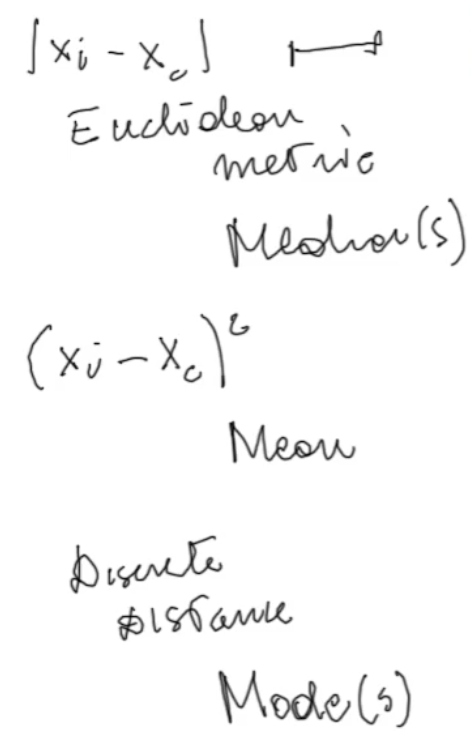 |xi - xc|
Euclidean
metric
Median(s)
(xi - xc)²
Mean
Discrete
Distance
Mode(s)